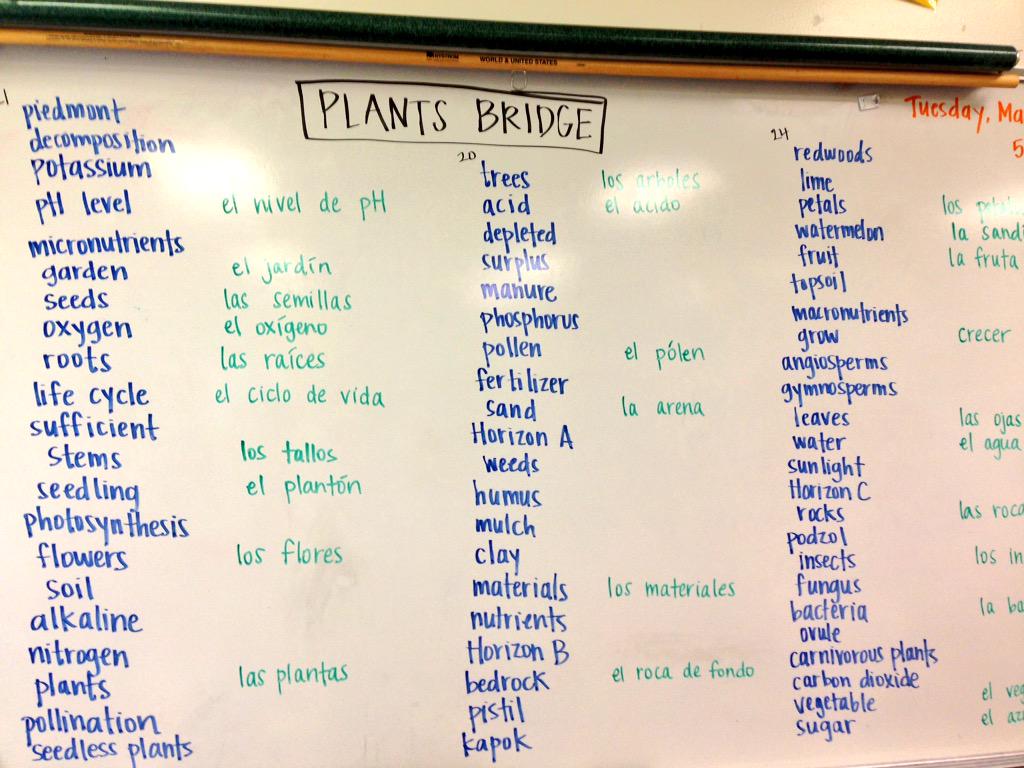 WORLD & UNITED STATES
PLANTS BRIDGE
Tuesday, Ma
5
piedmont
decomposition
potassium
pH level el nivel de pH
micronutrients
garden el jardín
seeds las semillas
oxygen el oxígeno
roots las raíces
life cycle el ciclo de vida
sufficient
stems los tallos
seedling el plantón
photosynthesis
flowers los flores
soil
alkaline
nitrogen
plants las plantas
pollination
seedless plants
20
trees los arboles
acid el acido
depleted
surplus
manure
phosphorus
pollen el pólen
fertilizer
sand la arena
Horizon A
weeds
humus
mulch
clay
materials los materiales
nutrients
Horizon B
bedrock el roca de fondo
pistil
kapok
24
redwoods
lime
petals los
watermelon la sandi
fruit la fruta
topsoil
macronutrients
grow crecer
angiosperms
gymnosperms
leaves las ojas
water el agua
sunlight
Horizon C
rocks las roca
podzol
insects los in
fungus
bacteria la ba
ovule
carnivorous plants
carbon dioxide
vegetable el veg
sugar el az